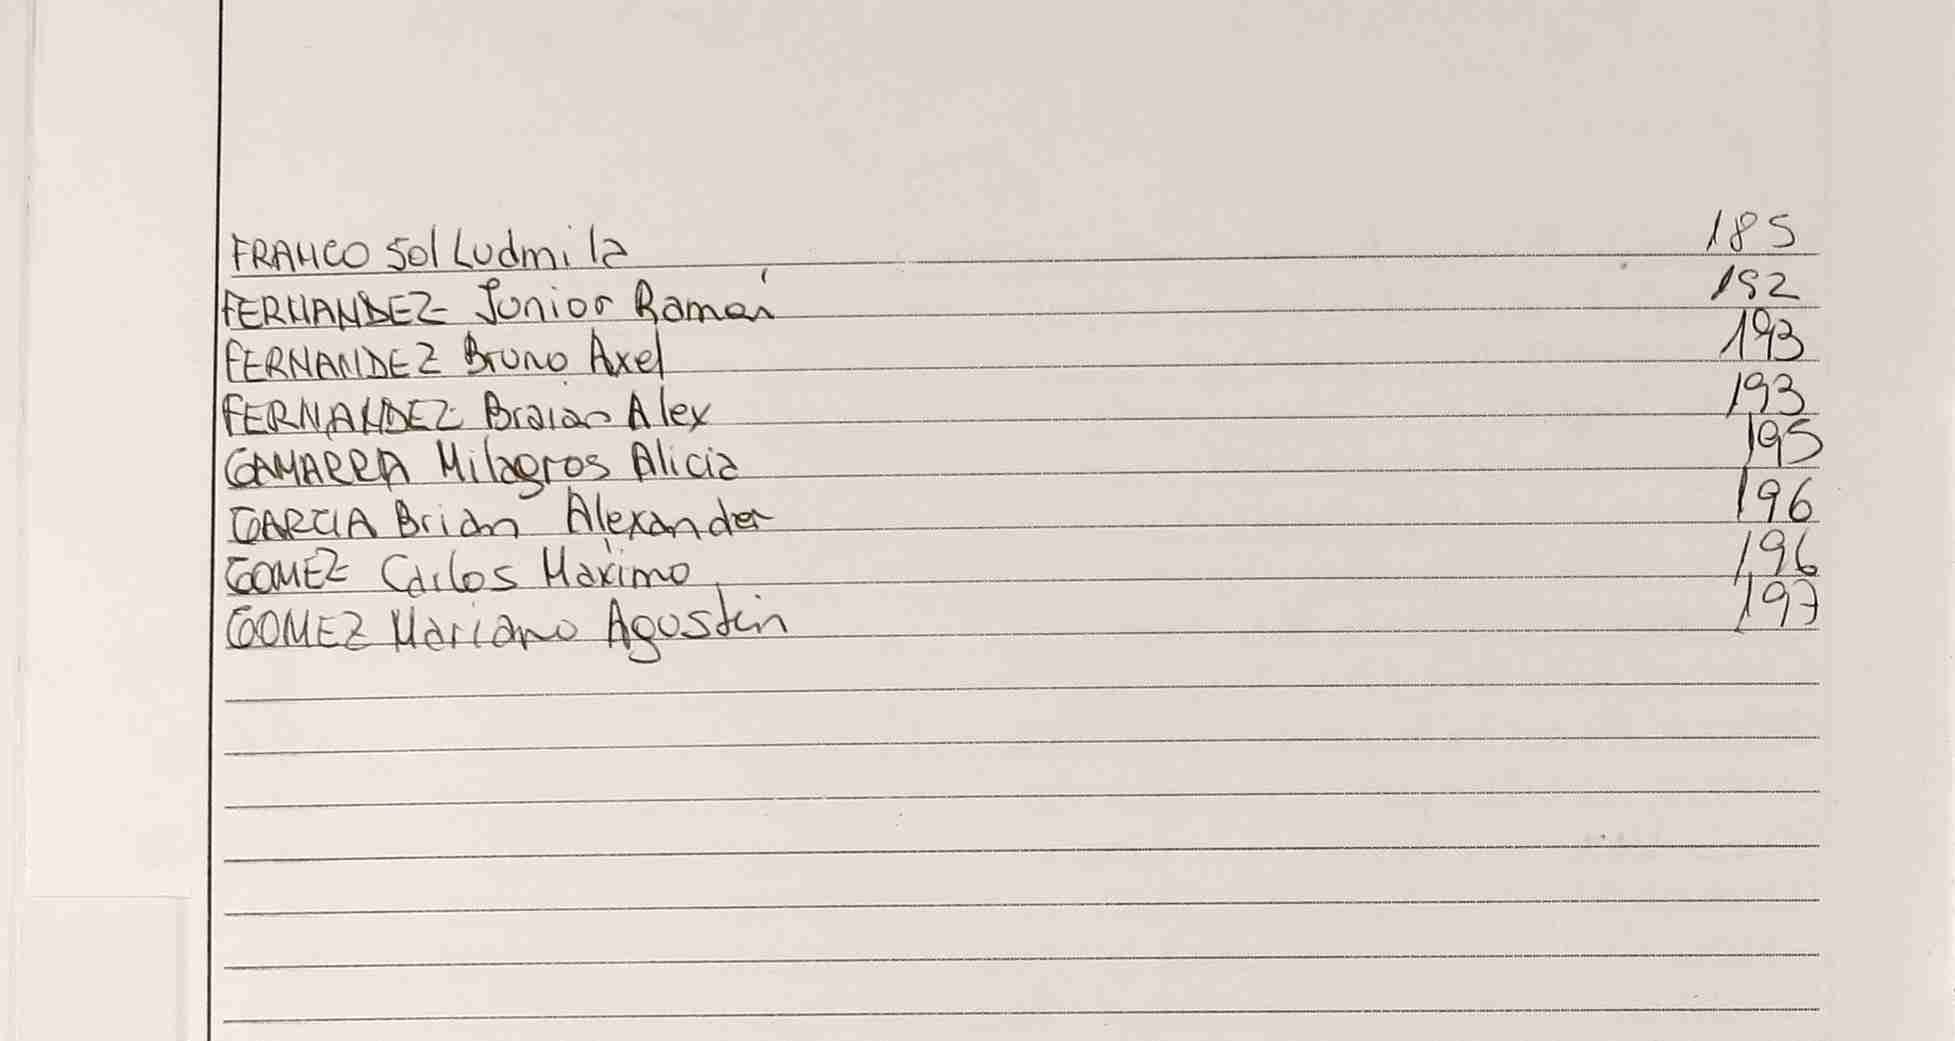 FRANCO Sol Ludmila 185
FERNANDEZ Junior Ramón 192
FERNANDEZ Bruno Axel 193
FERNANDEZ Braian Alex 193
GAMARRA Milagros Alicia 195
GARCIA Brian Alexander 196
GOMEZ Carlos Máximo 196
GOMEZ Mariano Agustin 197